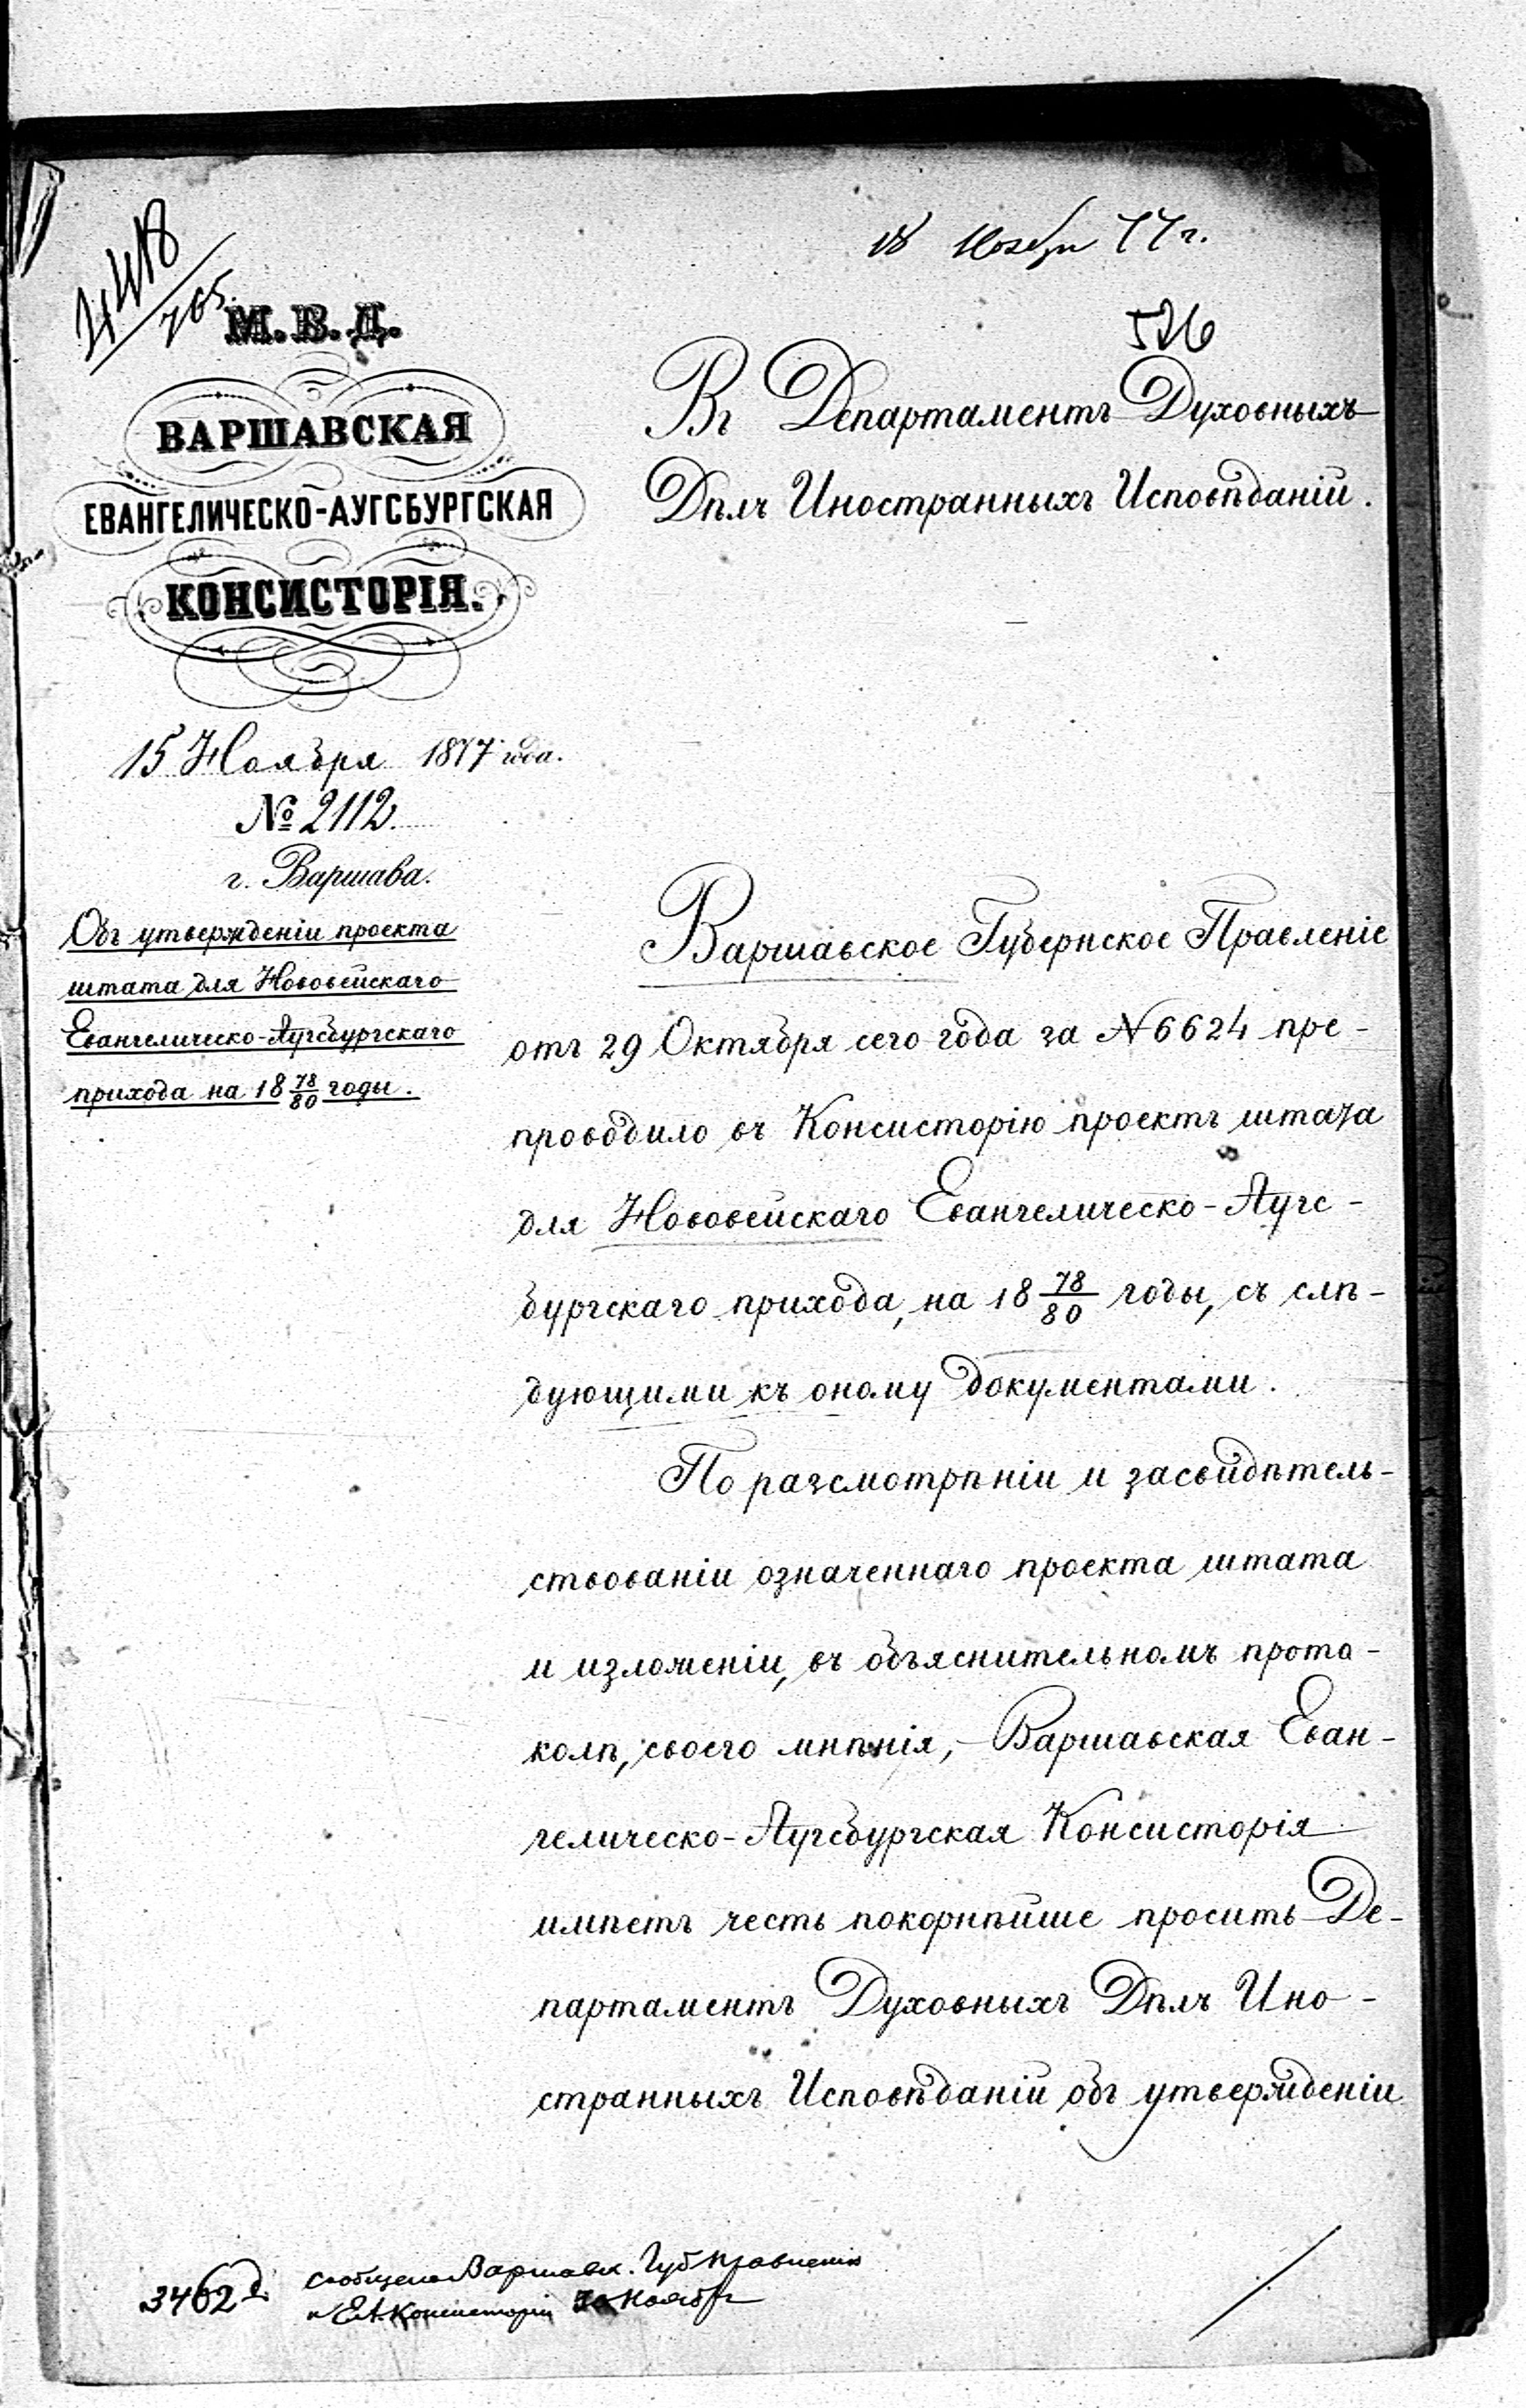 18 Ноября 77 г.
4418
705.
526
М. В. Д.
ВАРШАВСКАЯ
ЕВАНГЕЛИЧЕСКО-АУГСБУРГСКАЯ
КОНСИСТОРІЯ.
15 Ноября 1877 года.
№ 2112.
г. Варшава.
Объ утвержденіи проекта
штата для Нововейскаго
Евангелическо-Аугсбургскаго
прихода на 18 78/80 годы.
Въ Департаментъ Духовныхъ
Дѣлъ Иностранныхъ Исповѣданій.
Варшавское Губернское Правленіе
отъ 29 Октября сего года за № 6624 пре-
проводило въ Консисторію проектъ штата
для Нововейскаго Евангелическо-Аугс-
бургскаго прихода, на 18 78/80 годы, съ слѣ-
дующими къ оному документами.
По разсмотрѣніи и засвидѣтель-
ствованіи означеннаго проекта штата
и изложеніи, въ объяснительномъ прото-
колѣ, своего мнѣнія, Варшавская Еван-
гелическо-Аугсбургская Консисторія
имѣетъ честь покорнѣйше просить Де-
партаментъ Духовныхъ Дѣлъ Ино-
странныхъ Исповѣданій объ утвержденіи
3462
сообщено Варшавск. Губ Правленію
и Е.А. Консисторіи Ноября